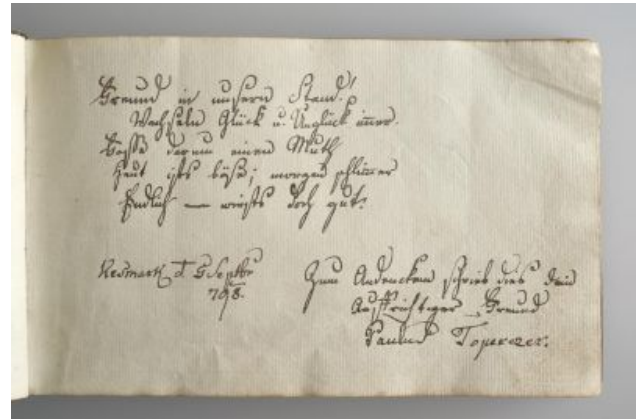 Freund in unsern Stand!
Wechseln Glück u. Unglück im̅er.
Fasse darum einen Muth
Heut ists böse; morgen schlim̅er
Endlich — wirds doch gut.
Kesmark d. 6 Septbr
798.
Zum Andencken schrieb dies dein
Aufrichtiger Freund
Paulus Toperczer.